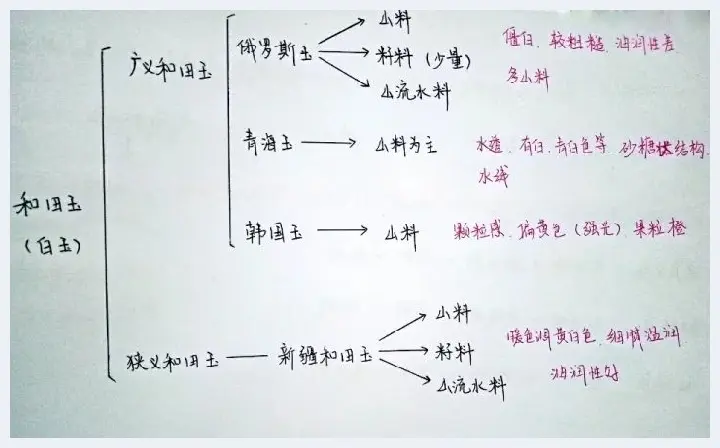 和田玉
(白玉)
广义和田玉
俄罗斯玉
山料
籽料 (少量)
山流水料
僵白、较粗糙、油润性差
多山料
青海玉
山料为主
水透、有白、青白色等 砂糖状结构、
水线
韩国玉
山料
颗粒感、偏黄色(强光)、果粒橙
狭义和田玉
新疆和田玉
山料
籽料
山流水料
暖色调黄白色、细腻温润
油润性好